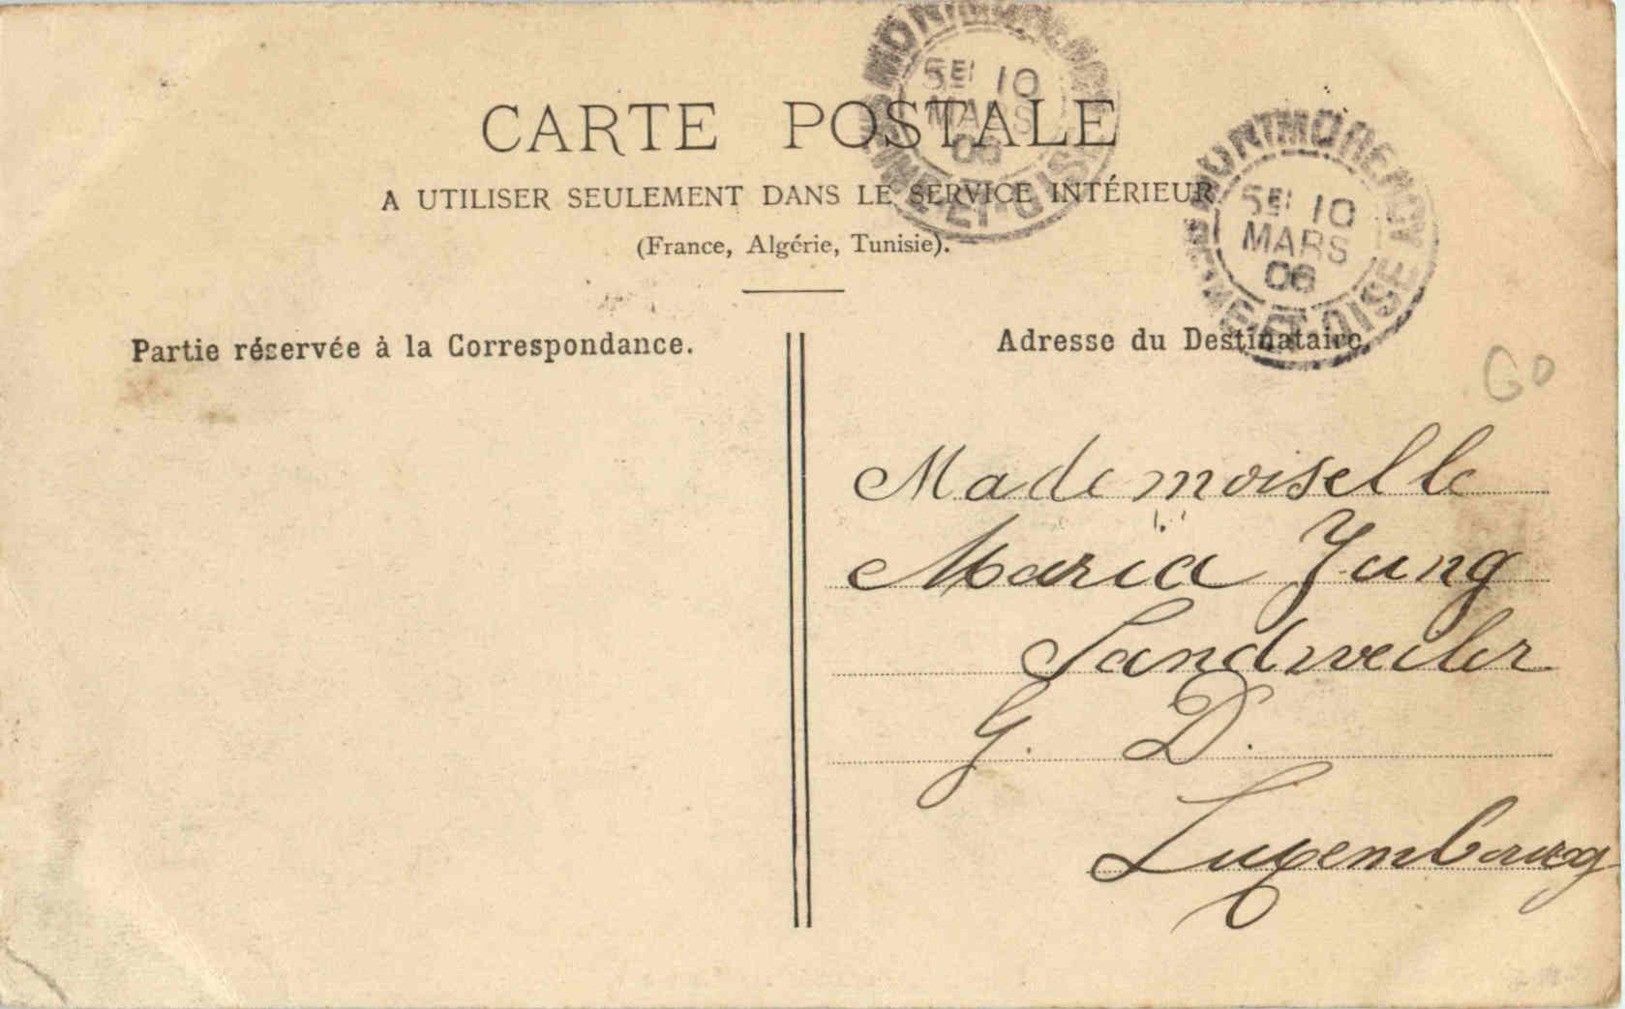 CARTE POSTALE
A UTILISER SEULEMENT DANS LE SERVICE INTÉRIEUR
(France, Algérie, Tunisie).
5E 10
MARS
06
5E 10
MARS
06
SEINE ET OISE
Partie réservée à la Correspondance.
Adresse du Destinataire.
GD
Mademoiselle
Maria Jung
Sandweiler
G. D.
Luxembourg